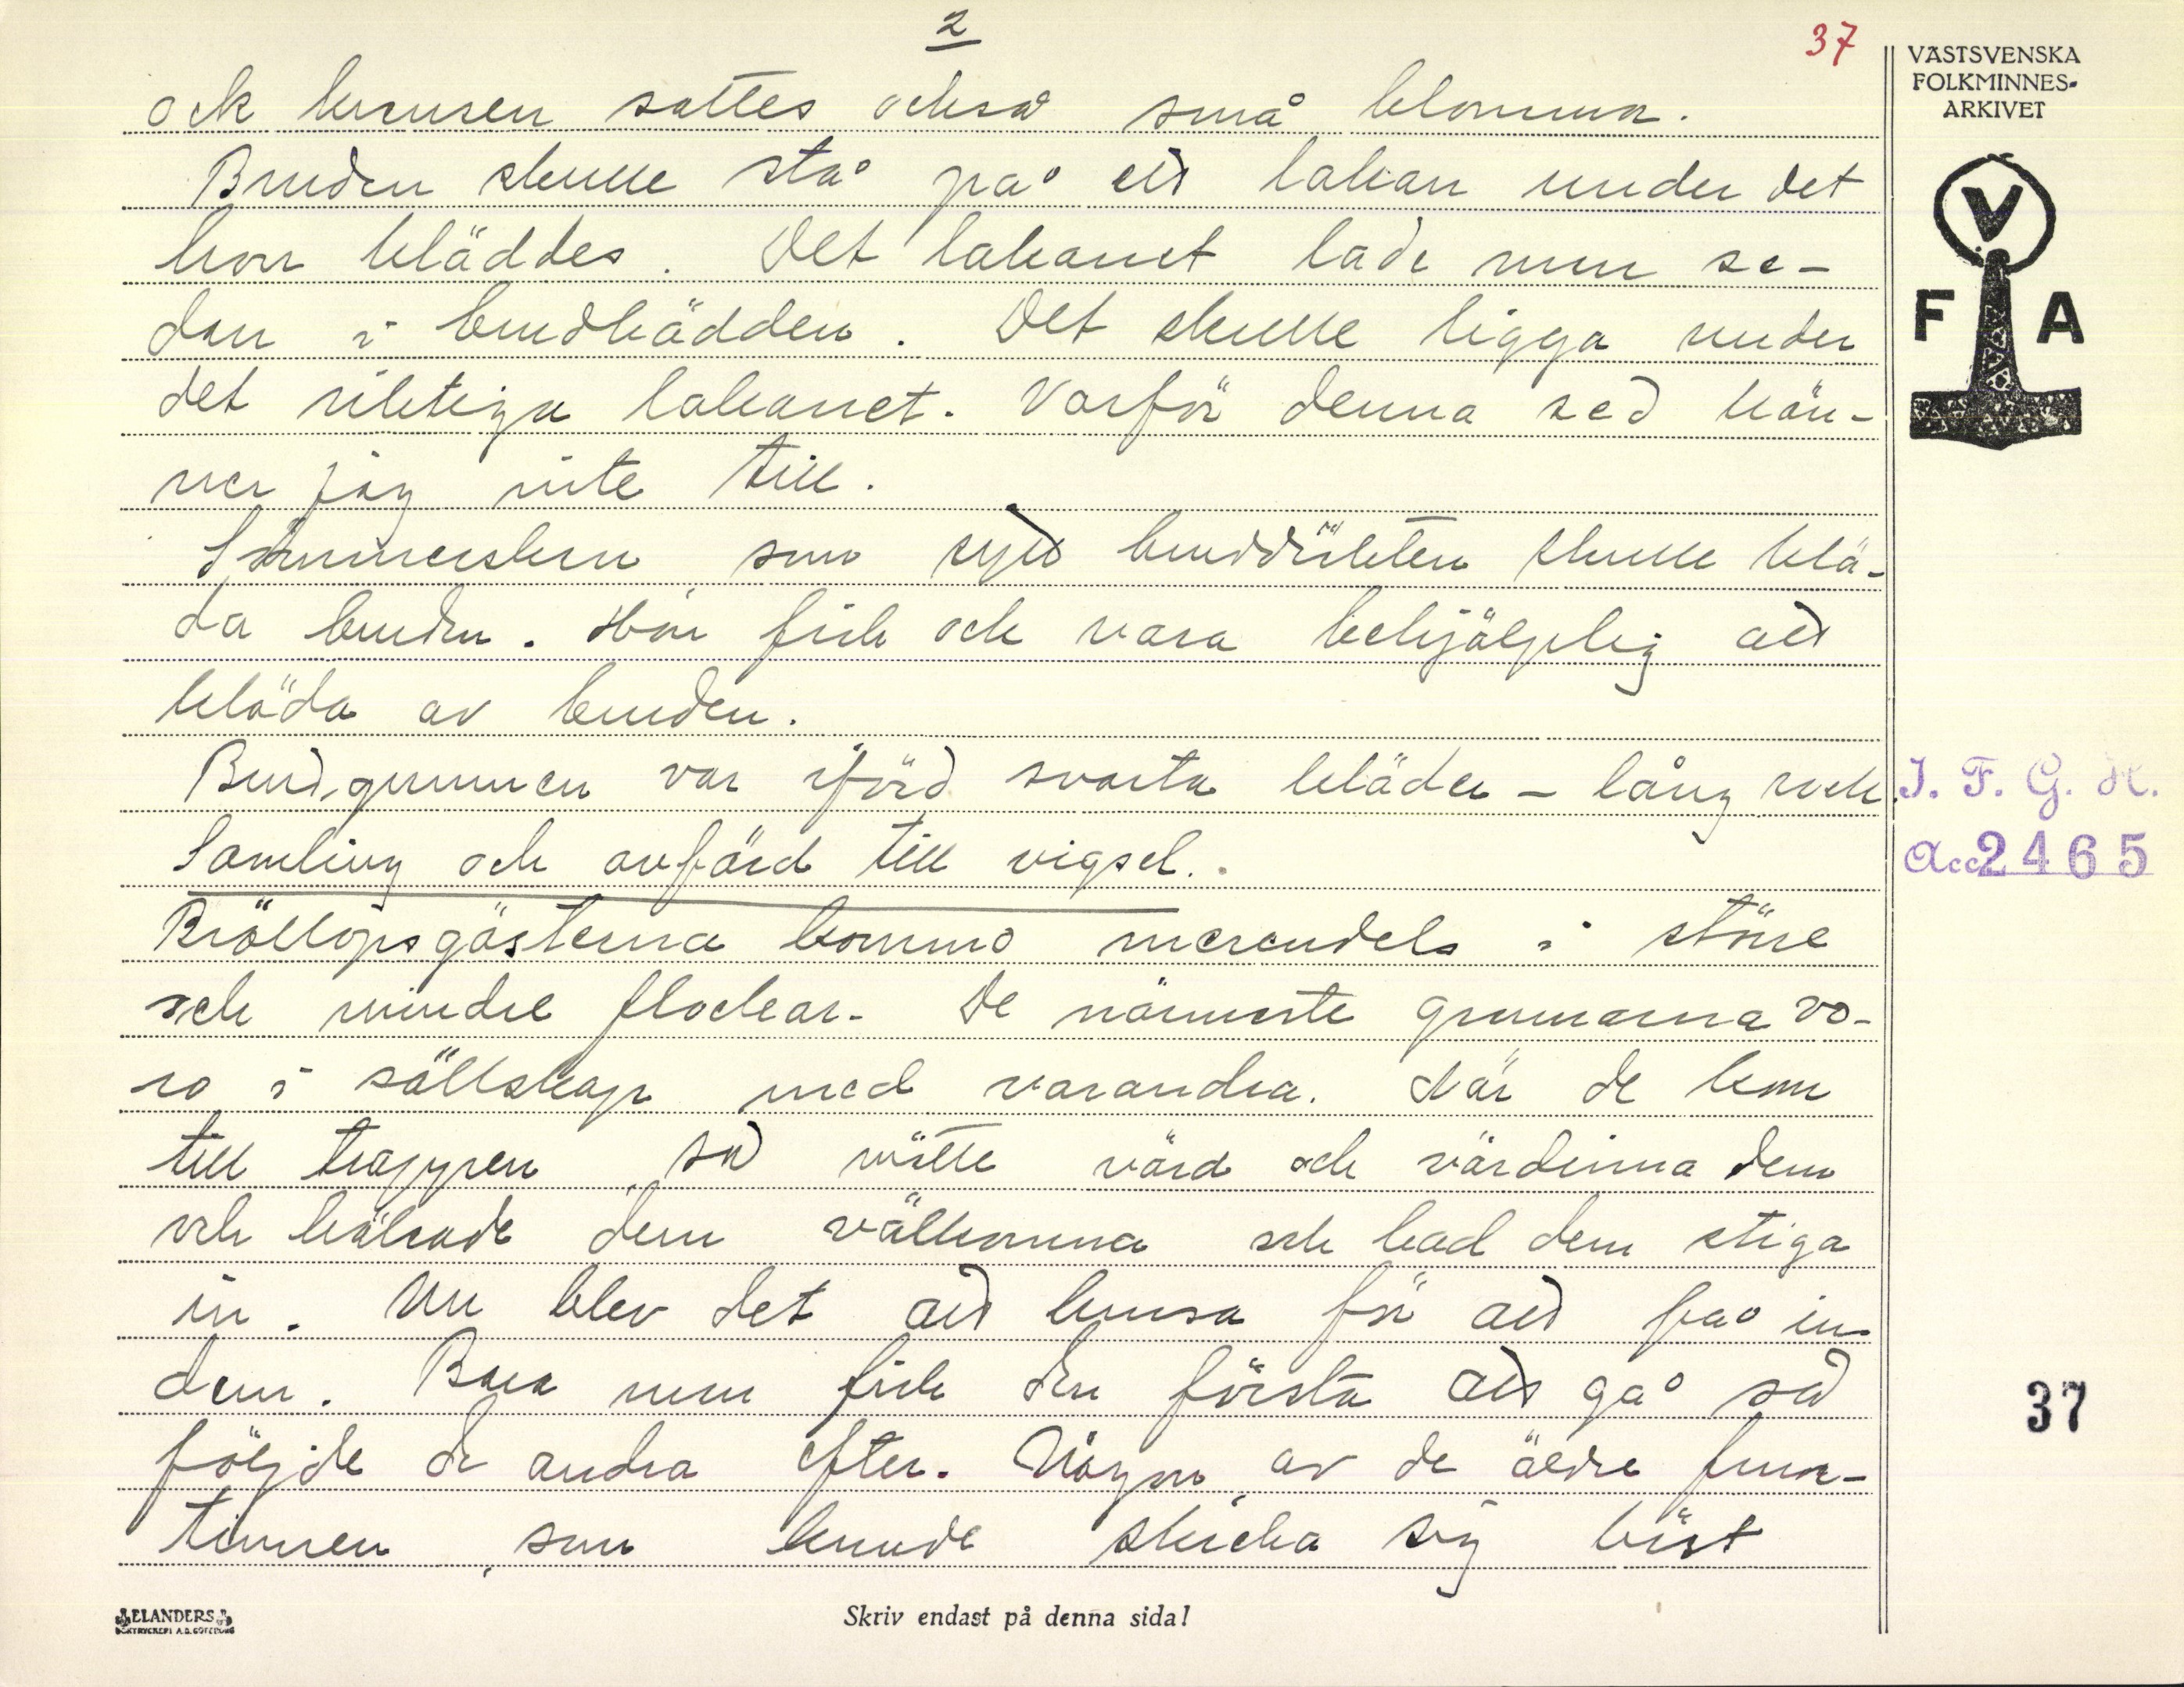 2
37
VÄSTSVENSKA
FOLKMINNES-
ARKIVET
ock kransen sattes också små blommor.
Bruden skulle stå på ett lakan under det
hon kläddes. Det lakanet lade man se-
dan i brudbädden. Det skulle ligga under
det riktiga lakanet. Varför denna sed kän-
ner jag inte till.
Sömmerskan som sytt bruddräkten skulle klä-
da bruden. Hon fick ock vara behjälplig att
kläda av bruden.
Brudgummen var iförd svarta kläder - lång rock.
Samling och avfärd till vigsel.
Bröllopsgästerna kommo merendels i större
och mindre flockar. De närmaste grannarna vo-
ro i sällskap med varandra. När de kom
till trappen, så mötte värd och värdinna dem
och hälsade dem välkomna och bad dem stiga
in. Nu blev det att krusa för att få in
dem. Bara man fick den första att gå så
följde de andra efter. Någon av de äldre frun-
timren, som kunde skicka sig bäst
V
F A
I. F. G. H.
Acc 2465
37
ELANDERS
BOKTRYCKERI A.B. GÖTEBORG
Skriv endast på denna sida!